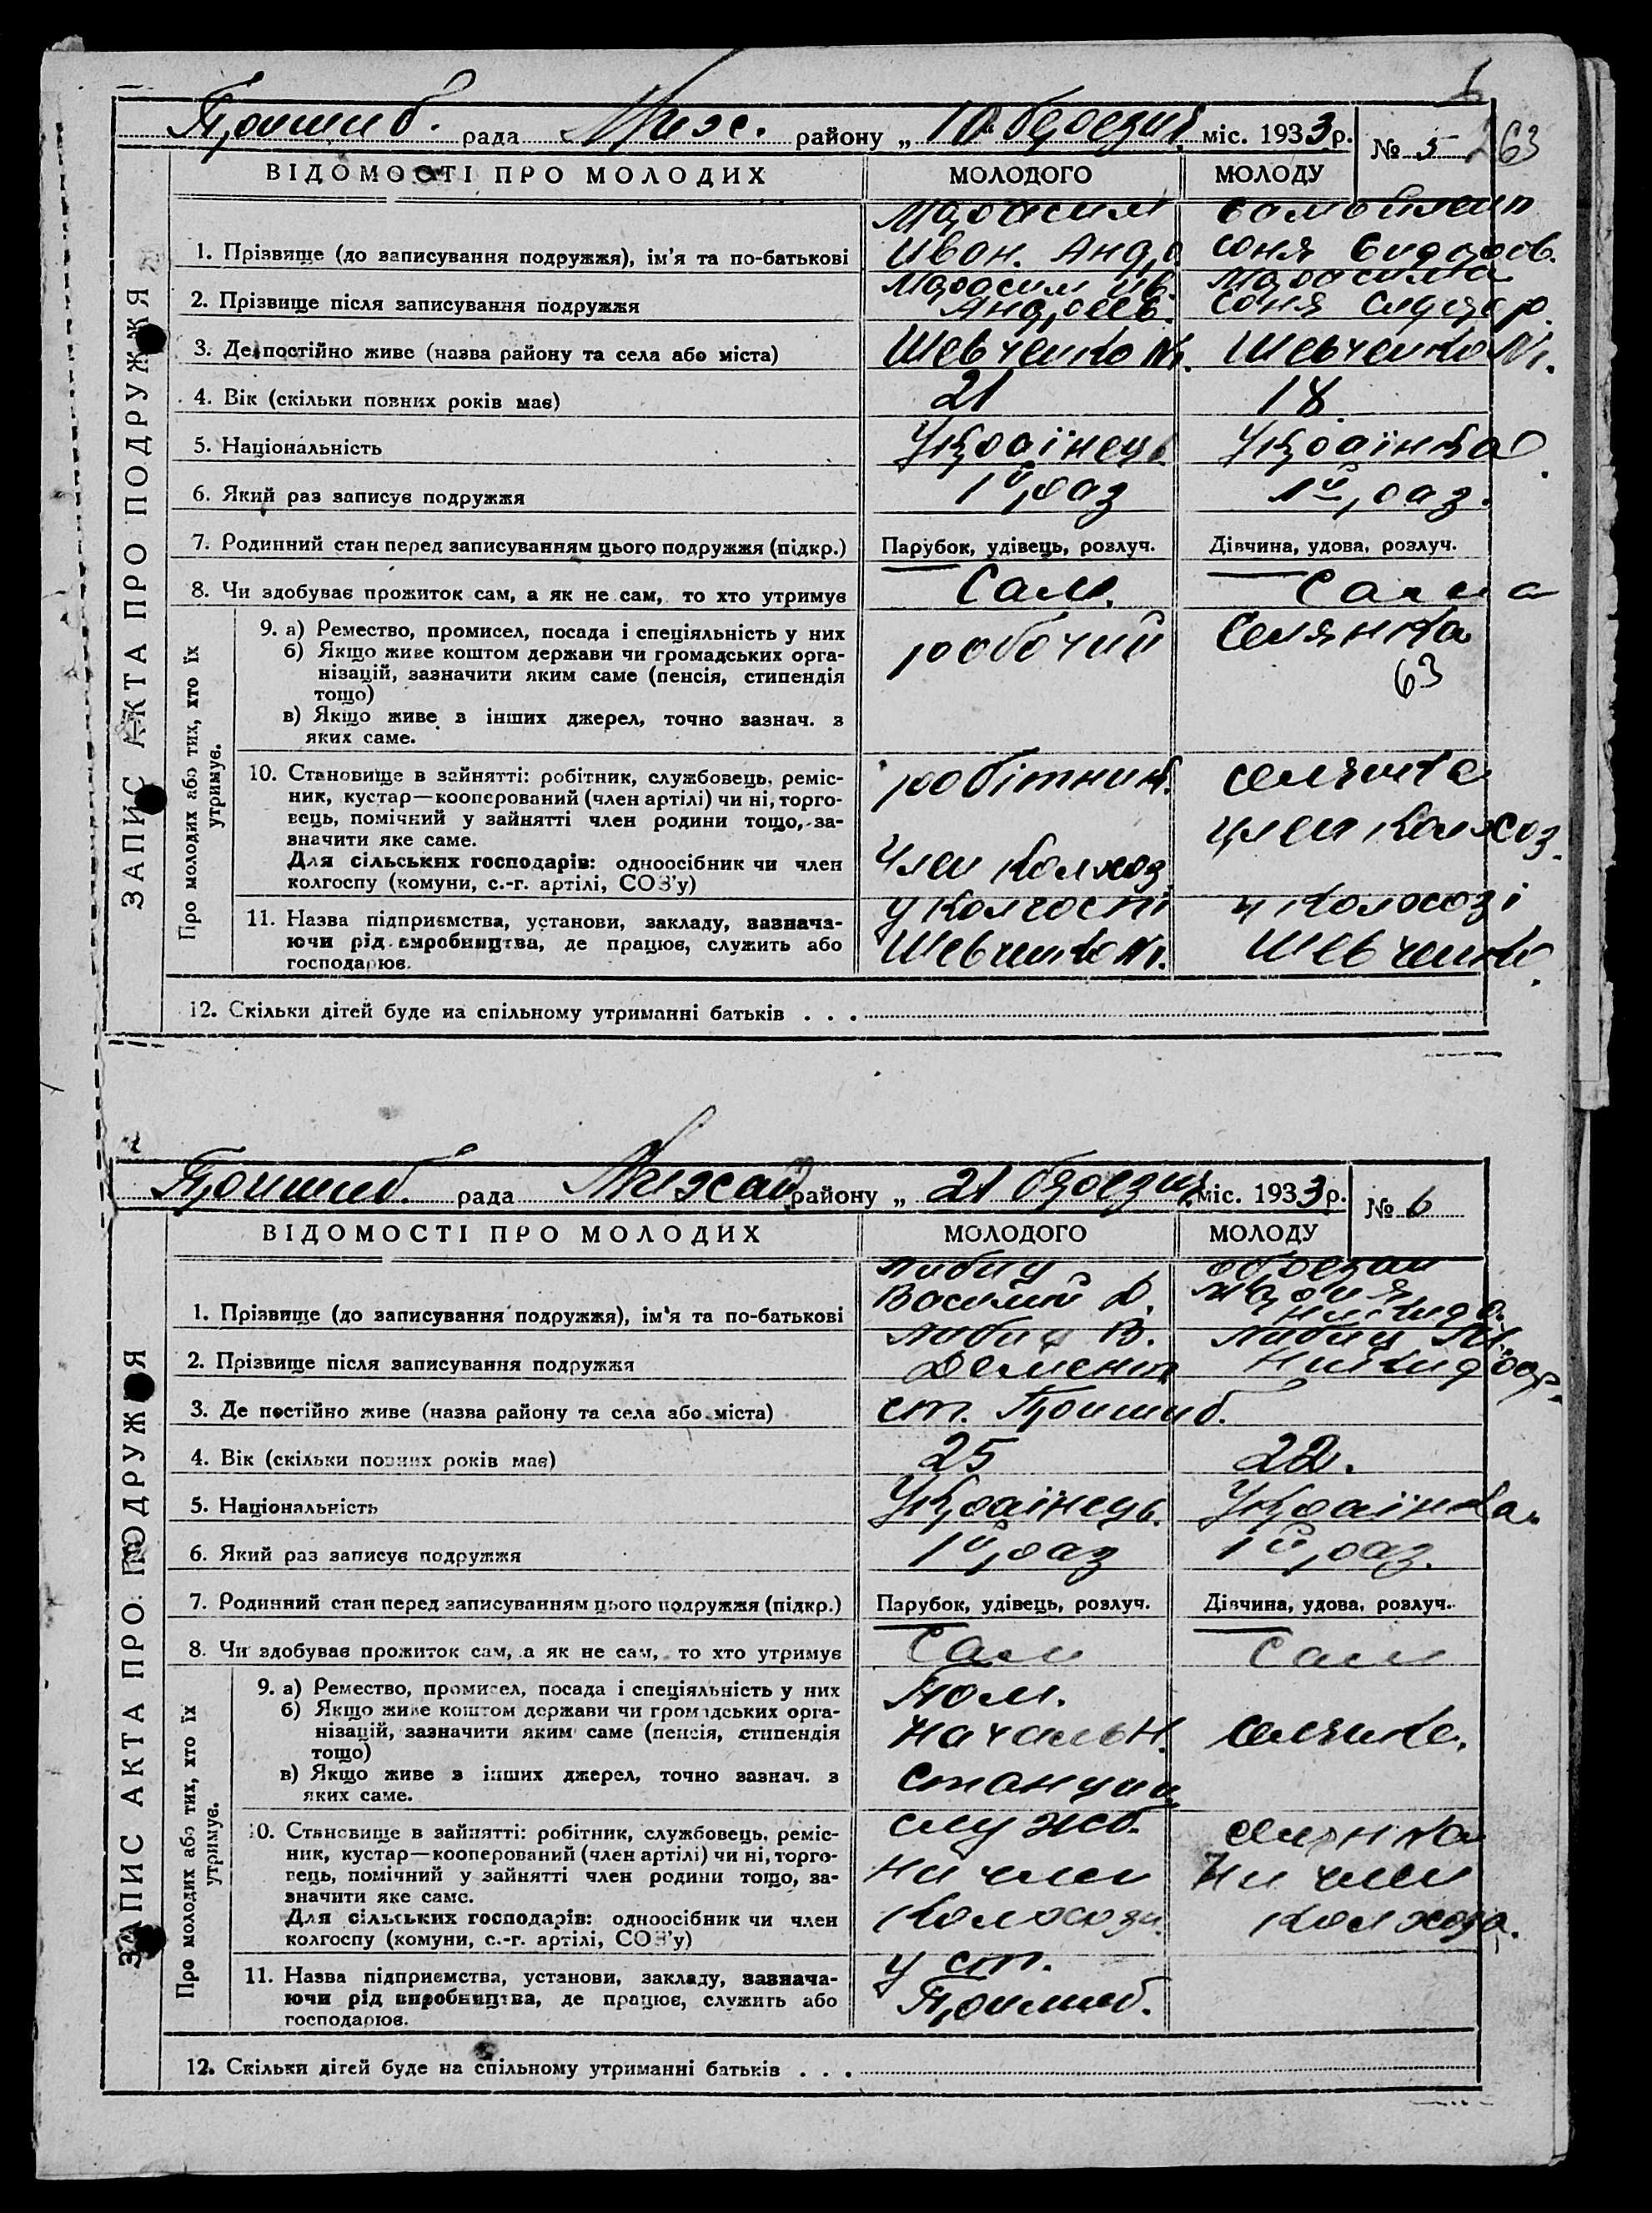 Пришиб. рада Мих. району „ 10 березня міс. 1933 р. № 5 263
ВІДОМОСТІ ПРО МОЛОДИХ МОЛОДОГО МОЛОДУ
ЗАПИС АКТА ПРО ПОДРУЖЖЯ
1. Прізвище (до записування подружжя), ім'я та по-батькові Иван. Андр Соня
2. Прізвище після записування подружжя Андреев. Соня
3. Де постійно живе (назва району та села або міста) Шевченко №1. Шевченко №1.
4. Вік (скільки повних років має) 21 18
5. Національність Українець Українка
6. Який раз записує подружжя 1й раз 1й раз.
7. Родинний стан перед записуванням цього подружжя (підкр.) Парубок, удівець, розлуч. Дівчина, удова, розлуч.
8. Чи здобуває прожиток сам, а як не сам, то хто утримує Сам. Сама
Про молодих або тих, хто їх утримує.
9. а) Ремество, промисел, посада і спеціяльність у них робочий селянка
б) Якщо живе коштом держави чи громадських орга- 63
нізацій, зазначити яким саме (пенсія, стипендія
тощо)
в) Якщо живе з інших джерел, точно зазнач. з
яких саме.
10. Становище в зайнятті: робітник, службовець, реміс- робітник. селянка
ник, кустар—кооперований (член артілі) чи ні, торго-
вець, помічний у зайнятті член родини тощо, за- член колхоз.
значити яке саме.
Для сільських господарів: одноосібник чи член член колхоз
колгоспу (комуни, с.-г. артілі, СОЗ'у)
11. Назва підприємства, установи, закладу, зазнача- у колгоспі у колхозі
ючи рід виробництва, де працює, служить або Шевченко №1. Шевченко.
господарює.
12. Скільки дітей буде на спільному утриманні батьків . . .
Пришиб. рада Михай району „ 21 березня міс. 1933 р. № 6
ВІДОМОСТІ ПРО МОЛОДИХ МОЛОДОГО МОЛОДУ
ЗАПИС АКТА ПРО ПОДРУЖЖЯ
1. Прізвище (до записування подружжя), ім'я та по-батькові Василий Д. Мария
2. Прізвище після записування подружжя В. Демент М.
3. Де постійно живе (назва району та села або міста) ст. Пришиб.
4. Вік (скільки повних років має) 25 22.
5. Національність Українець. Українка.
6. Який раз записує подружжя 1й раз 1й раз.
7. Родинний стан перед записуванням цього подружжя (підкр.) Парубок, удівець, розлуч. Дівчина, удова, розлуч.
8. Чи здобуває прожиток сам, а як не сам, то хто утримує Сам Сам
Про молодих або тих, хто їх утримує.
9. а) Ремество, промисел, посада і спеціяльність у них Пом.
б) Якщо живе коштом держави чи громадських орга-
нізацій, зазначити яким саме (пенсія, стипендія начальн. селянка.
тощо)
в) Якщо живе з інших джерел, точно зазнач. з станции
яких саме.
10. Становище в зайнятті: робітник, службовець, реміс- служб. селянка
ник, кустар—кооперований (член артілі) чи ні, торго-
вець, помічний у зайнятті член родини тощо, за- ни член Ни член
значити яке саме.
Для сільських господарів: одноосібник чи член колхоза. колхоза.
колгоспу (комуни, с.-г. артілі, СОЗ'у)
11. Назва підприємства, установи, закладу, зазнача- у ст.
ючи рід виробництва, де працює, служить або Пришиб.
господарює.
12. Скільки дітей буде на спільному утриманні батьків . . .